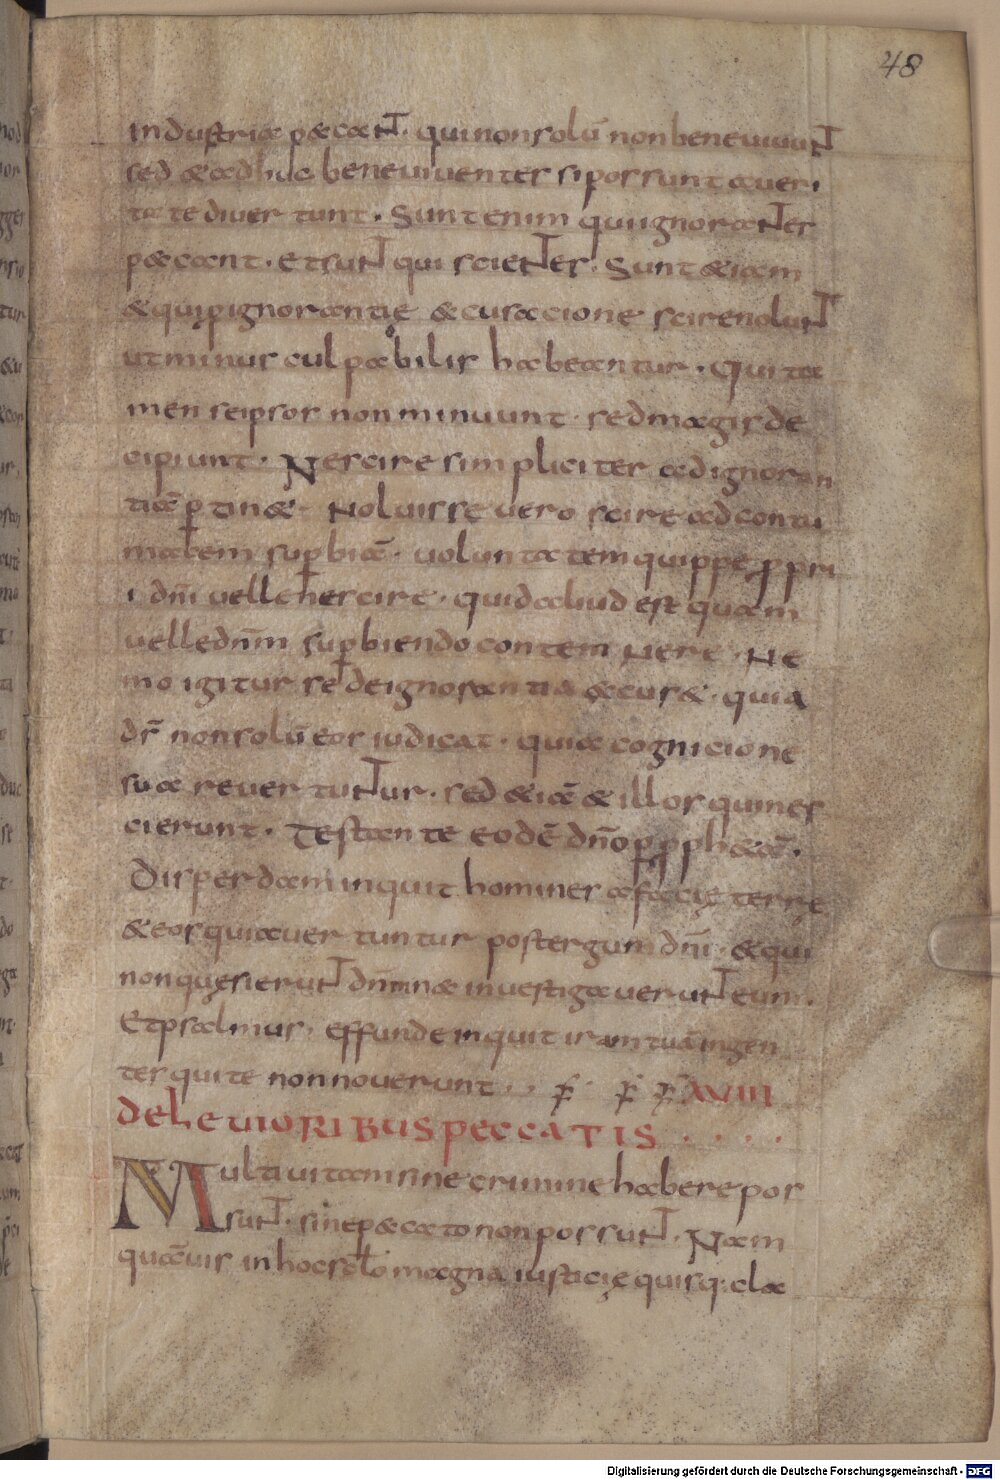 48
industria peccant. qui non solū non bene uiuunt
sed & adhuc bene uiuentes si possunt a ueri
tate diuertunt. Sunt enim qui ignoranter
peccant. Et sunt qui scienter. Sunt & iam
& qui p ignorantię &cusacione scire nolunt
ut minus culpabilis habeantur. Qui ta
men se ipsos non minuunt. sed magis de
cipiunt. Nescire simpliciter ad ignoran
tiā p̲tin&. Noluisse uero scire ad contu
macem sup̲biā. uoluntatem quippe p̲pri
i dn̄i uelle nescire. quid aliud est quam
uelle dn̄m sup̲biendo contemnere. Ne
mo igitur se de ignorantia &cus&. quia
ds̄ non solū eos iudicat. qui a cognicione
sua reuertuntur. sed & iā & illos qui nes
cierunt. Testante eodē dn̄o p̲ p̲ph&ā.
Disperdam inquit homines a facię terrę
& eos qui auertuntur post ergum dn̄i. & qui
non quęsierunt dn̄m na inuestigauerunt eum.
Et psalmus. effunde inquit iram tuā in gen
tes qui te non nouerunt. XVIII
de leuioribus peccatis . . . .
Multi uitam sine crimine habere pos
sunt. sine peccato non possunt. Nam
quāuis in hoc sc̄lo magna iusticię quisq; cla
Digitalisierung gefördert durch die Deutsche Forschungsgemeinschaft - DFG